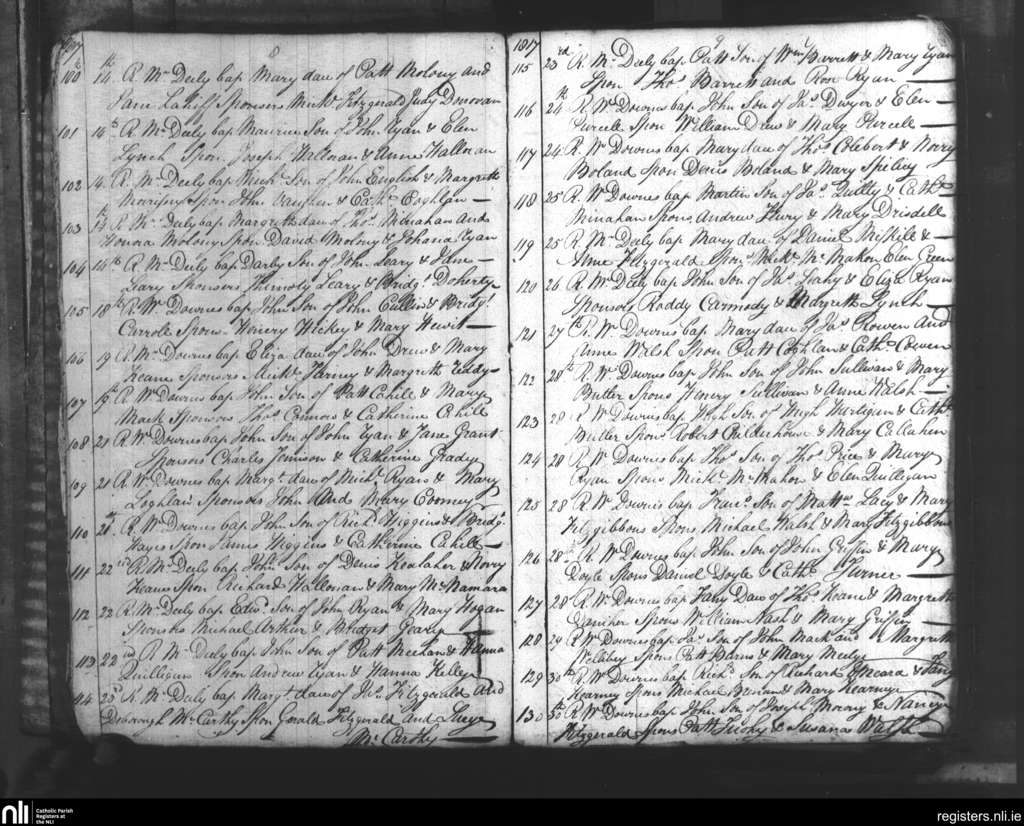 100 14 R Mr Deely bap Mary dau of Patt Molony and
Jane Lahiff Sponsors Michl Fitzgerald Judy Donovan
101 14th R Mr Deely bap Maurice Son of John Ryan & Elen
Lynch Spon Joseph Halloran & Anne Halloran
102 14 R Mr Deely bap Michl Son of John English & Margreth
Morrissy Spon John Vaughen & Cath Coghlan
103 R Mr Deely bap Margreth dau of Thos Minahan And
Honora Molony Spon David Molony & Johana Ryan
104 14th R Mr Deely bap Darby Son of John Leary & Jane
Leary Sponsors Leary & Bridgt Doherty
105 18th R Wr Downes bap John Son of John Cullin & Bridgt
Carrole Spon Henery Hickey & Mary Hewit
106 19 R Mr Downes bap Eliza dau of John Drew & Mary
Keane Sponsors Michl & Margreth
107 19th R Wr Downes bap John Son of Patt Cahile & Mary
Mack Sponsors Thos & Catherine Cahill
108 21 R Wr Downes bap John Son of John Ryan & Jane Grant
Sponsors Charles Jemison & Catherine Grady
109 21 R Wr Downes bap Margt dau of Michl Ryan & Mary
Loghlen Sponsors John And Mary Cooney
110 21st R Wr Downes bap John Son of Richd Higgins & Bridgt
Hayes Spon James Higgins & Catherine Cahill
111 22 R Mr Deely bap John Son of Denis Kealaher & Norry
Keane Spon Richard Halloran & Mary McNamara
112 22 R Mr Deely bap Edwd Son of John Ryan & Mary Hogan
Sponsors Michael Arthur & Bridget Geary
113 22nd R Mr Deely bap John Son of Patt Meehan & Hanna
Quilligan Spon Andrew Ryan & Hanna Kelley
114 23rd R Mr Deely bap Margt dau of Fitzgerald And
McCarthy Spon Gerald Fitzgerald and
Mc Carthy
1817
115 23rd R Mr Deely bap Patt Son of Wm Barrett & Mary Ryan
Spon Thos Barrett and Rose Ryan
116 24 R Wr Downes bap John Son of Jas Dwyer & Elen
Purcele Spon William Drew & Mary Purcele
117 24 R Wr Downes bap Mary dau of Thos Colebert & Norry
Boland Spon Denis Boland & Mary
118 25 R Wr Downes bap Martin Son of Jas Quilty & Cathe
Minahan Spons Andrew & Mary Drisdell
119 25 R Mr Deely bap Mary dau of Daniel & 
Anne Fitzgerald Spons Michl McMahon Elen Green
120 26 R Wr Deely bap John Son of Jas Leahy & Eliza Ryan
Sponsors Roddy Carmody & Margreth Lynch
121 27th R Wr Downes bap Mary dau of Jas Cowen And
Anne Walsh Spon Patt Coghlan & Cathe Cowen
122 28th R Wr Downes bap John Son of John Sullivan & Mary
Butler Spons Henery Sullivan & Anne Walsh
123 28 R Wr Downes bap Hugh Son of Hugh Hurligan & Cathe
Butler Spons Robert Bilderhouse & Mary Callahan
124 28 R Wr Downes bap Thos Son of Thos Price & Mary
Ryan Spons Michl McMahon & Elen Quilligan
125 28 R Wr Downes bap Frans Son of Lacy & Mary
Fitzgibbons Spons Michael Walsh & Mary Fitzgibbons
126 28 R Wr Downes bap John Son of John Griffin & Mary
Doyle Spons Daniel Doyle & Cathe Turner
127 28 R Wr Downes bap Dau of Thos Keane & Margreth
Spons William Nash & Mary Griffin
128 29 R Wr Downes bap Jas Son of John Mack and Margreth
Spons Patt Burns & Mary Meely
129 30th R Wr Downes bap Richd Son of Richard &
Kearney Spons Michael & Mary Kearney
130 30th R Wr Downes bap John Son of Joseph & Nancy
Fitzgerald Spons Patt & Susana Walsh
nli
Catholic Parish
Registers at
the NLI
registers.nli.ie